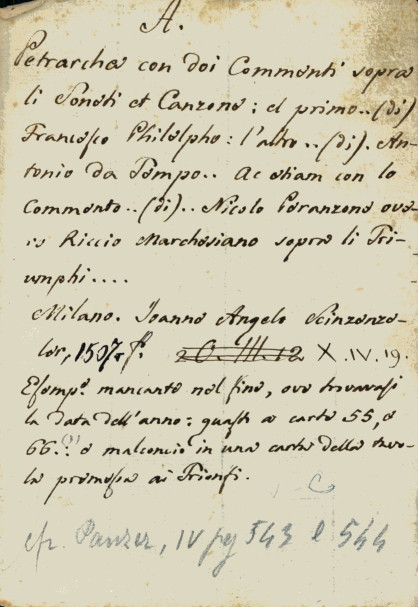 A.
Petrarcha con doi Commenti sopra
li Soneti et Canzone: el primo..(di)
Francesco Philelpho: l'altro..(di). An-
tonio da Tempo.. Ac etiam con lo
Commento..(di)..Nicolo Peranzone ove-
ro Riccio Marchesiano sopra li Tri-
umphi....
Milano. Joanne Angelo Scinzenze-
ler, 1507. f.º 2 O. III. 12 X.IV.19.
Esemp.e mancante nel fine, ove trovavasi
la data dell'anno: guasto a carte 55, e
66.(?) e malconcio in una carta della tavo-
la premessa ai Trionfi.
cfr. Panzer, IV pag 543 e 544